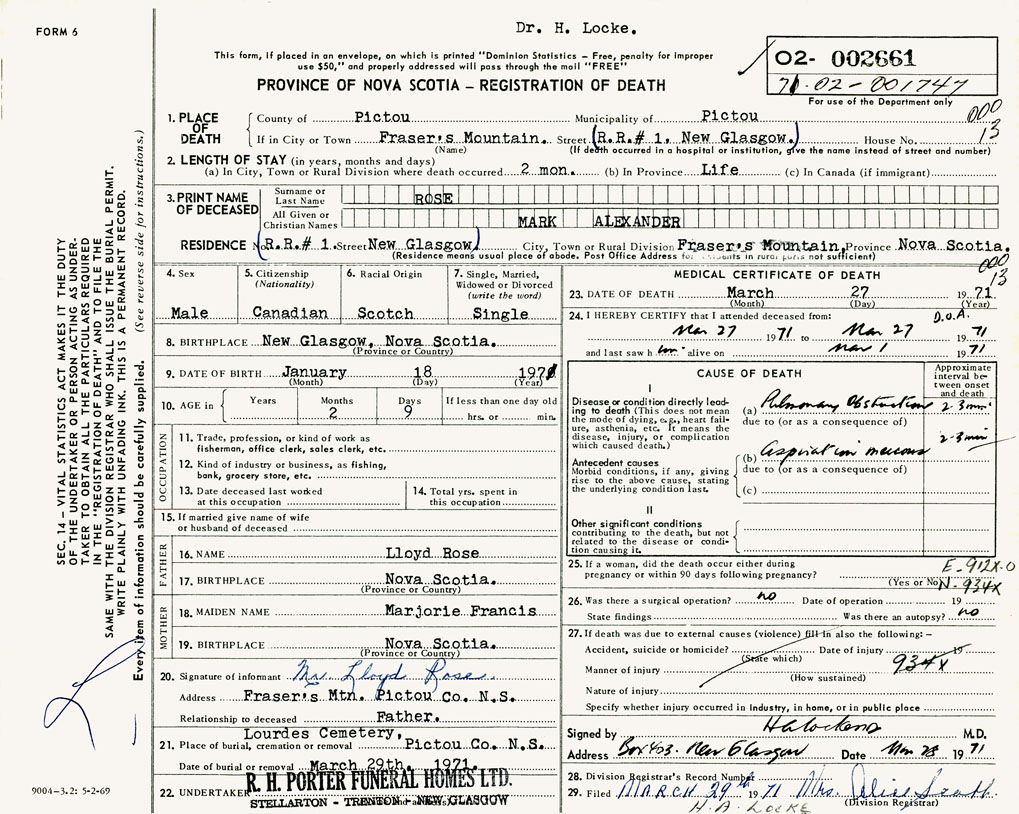 FORM 6
Dr. H. Locke.
This form, if placed in an envelope, on which is printed "Dominion Statistics – Free, penalty for improper
use $50," and properly addressed will pass through the mail "FREE"
PROVINCE OF NOVA SCOTIA – REGISTRATION OF DEATH
02- 002661
71-02-001747
For use of the Department only
000
13
1. PLACE OF DEATH
County of Pictou Municipality of Pictou
If in City or Town Fraser's Mountain. Street (R.R.# 1, New Glasgow.) House No.
(Name) (If death occurred in a hospital or institution, give the name instead of street and number)
2. LENGTH OF STAY (in years, months and days)
(a) In City, Town or Rural Division where death occurred 2 mon. (b) In Province Life (c) In Canada (if immigrant)
3. PRINT NAME OF DECEASED
Surname or Last Name ROSE
All Given or Christian Names MARK ALEXANDER
RESIDENCE No. (R.R.# 1. Street New Glasgow) City, Town or Rural Division Fraser's Mountain, Province Nova Scotia.
(Residence means usual place of abode. Post Office Address for residents in rural parts not sufficient)
000
13
4. Sex
Male
5. Citizenship
(Nationality)
Canadian
6. Racial Origin
Scotch
7. Single, Married,
Widowed or Divorced
(write the word)
Single
8. BIRTHPLACE New Glasgow, Nova Scotia.
(Province or Country)
9. DATE OF BIRTH January 18 1971
(Month) (Day) (Year)
10. AGE in
Years
Months
2
Days
9
If less than one day old
hrs. or min.
OCCUPATION
11. Trade, profession, or kind of work as
fisherman, office clerk, sales clerk, etc.
12. Kind of industry or business, as fishing,
bank, grocery store, etc.
13. Date deceased last worked
at this occupation
14. Total yrs. spent in
this occupation
15. If married give name of wife
or husband of deceased
FATHER
16. NAME Lloyd Rose
17. BIRTHPLACE Nova Scotia.
(Province or Country)
MOTHER
18. MAIDEN NAME Marjorie Francis
19. BIRTHPLACE Nova Scotia.
(Province or Country)
20. Signature of informant Mr. Lloyd Rose.
Address Fraser's Mtn. Pictou Co. N.S.
Relationship to deceased Father.
Lourdes Cemetery,
21. Place of burial, cremation or removal Pictou Co. N.S.
Date of burial or removal March 29th. 1971.
22. UNDERTAKER R. H. PORTER FUNERAL HOMES LTD.
STELLARTON - TRENTON - NEW GLASGOW
MEDICAL CERTIFICATE OF DEATH
23. DATE OF DEATH March 27 1971
(Month) (Day) (Year)
24. I HEREBY CERTIFY that I attended deceased from: D.O.A.
Mar 27 1971 to Mar 27 1971
and last saw him alive on Mar 1 1971
CAUSE OF DEATH
Approximate
interval be-
tween onset
and death
I
Disease or condition directly lead-
ing to death (This does not mean
the mode of dying, e.g., heart fail-
ure, asthenia, etc. It means the
disease, injury, or complication
which caused death.)
(a) Pulmonary Obstruction 2-3 min
due to (or as a consequence of)
Antecedent causes
Morbid conditions, if any, giving
rise to the above cause, stating
the underlying condition last.
(b) Aspiration mucous 2-3 min
due to (or as a consequence of)
(c)
II
Other significant conditions
contributing to the death, but not
related to the disease or condi-
tion causing it.
25. If a woman, did the death occur either during
pregnancy or within 90 days following pregnancy?
(Yes or No)
E-912X-0
N-934X
26. Was there a surgical operation? no Date of operation 19
State findings Was there an autopsy? no
27. If death was due to external causes (violence) fill in also the following: –
Accident, suicide or homicide? Date of injury 19
(State which)
Manner of injury 934X
(How sustained)
Nature of injury
Specify whether injury occurred in industry, in home, or in public place
Signed by M.D.
Address Box 403. New Glasgow Date Mar 28 1971
28. Division Registrar's Record Number
29. Filed MARCH 29th 1971 Mrs.
(Division Registrar)
H. A. LOCKE
SEC. 14 – VITAL STATISTICS ACT MAKES IT THE DUTY
OF THE UNDERTAKER OR PERSON ACTING AS UNDER-
TAKER TO OBTAIN ALL THE PARTICULARS REQUIRED
IN THE "REGISTRATION OF DEATH" AND TO FILE THE
SAME WITH THE DIVISION REGISTRAR WHO SHALL ISSUE THE BURIAL PERMIT.
WRITE PLAINLY WITH UNFADING INK. THIS IS A PERMANENT RECORD.
Every item of information should be carefully supplied. (See reverse side for instructions.)
9004-3.2: 5-2-69